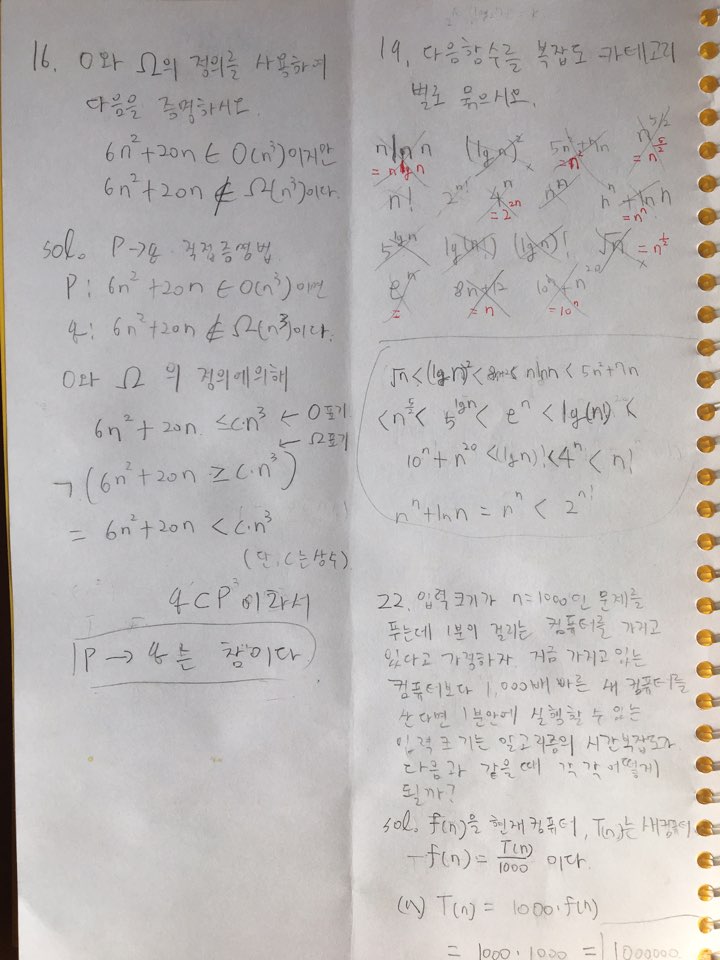 16. O와 Ω의 정의를 사용하여
다음을 증명하시오.
6n²+20n ∈ O(n³)이지만
6n²+20n ∉ Ω(n³)이다.
sol. P→q 직접증명법
P: 6n²+20n ∈ O(n³)이면
q: 6n²+20n ∉ Ω(n³)이다.
O와 Ω의 정의에의해
6n²+20n ≤ c·n³ ← O표기
← Ω표기
¬(6n²+20n ≥ c·n³)
= 6n²+20n < c·n³
(단, c는상수)
q⊂P 이라서
P → q 는 참이다.
19. 다음함수를 복잡도 카테고리
별로 묶으시오.
n ln n (lg n)² 5n²+7n n^5/2
= n lg n = n² = n^5/2
n! 2^n! 4^n n^n n^n + ln n
= 2^2n = n^n
5^lg n lg(n!) (lg n)! √n = n^1/2
e^n 8n+12 10^n + n^20
= = n = 10^n
√n < (lg n)² < 8n+12 < n ln n < 5n²+7n
< n^5/2 < 5^lg n < e^n < lg(n!) <
10^n + n^20 < (lg n)! < 4^n < n!
n^n + ln n = n^n < 2^n!
22. 입력크기가 n=1000인 문제를
푸는데 1분이 걸리는 컴퓨터를 가지고
있다고 가정하자. 지금 가지고 있는
컴퓨터보다 1,000배 빠른 새 컴퓨터를
산다면 1분안에 실행할 수 있는
입력크기는 알고리즘의 시간복잡도가
다음과 같을 때 각각 어떻게
될까?
sol. f(n)을 현재컴퓨터, T(n)는 새컴퓨터
- f(n) = T(n)/1000 이다.
(n) T(n) = 1000·f(n)
= 1000·1000 = 1000000